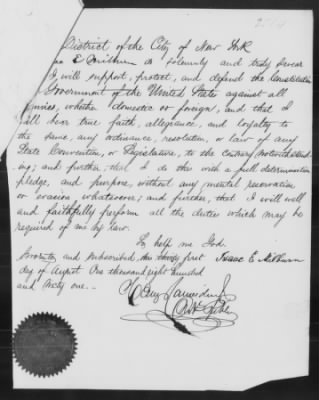 District of the City of New York
E. Milburn do solemnly and truly swear
I will support, protect, and defend the Constitution
Government of the United States against all
enemies, whether domestic or foreign, and that I
will bear true faith, allegiance, and loyalty to
the same, any ordinance, resolution, or law of any
State Convention, or Legislature, to the contrary notwithstand-
ing; and further, that I do this with a full determination
pledge, and purpose, without any mental reservation
or evasion whatsoever; and further, that I will well
and faithfully perform all the duties which may be
required of me by law.
So help me God.
Sworn to, and subscribed, this thirty first Isaac E. Milburn
day of August One thousand eight hundred
and sixty one.